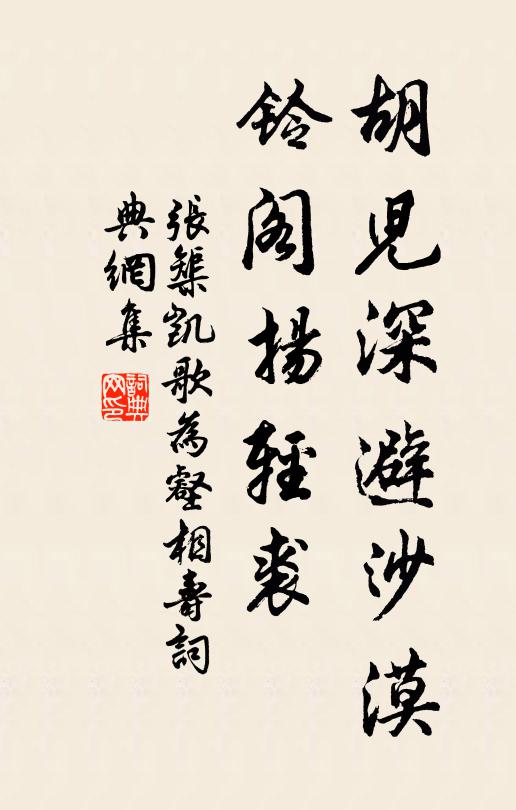 胡兒深避沙漠
鈴閣揚輕裘
張榘凱歌為壑相壽詞
典網集
詞典網印